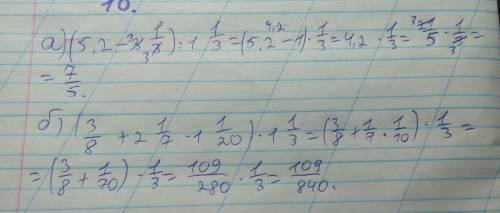 10.
а) (5,2 - ³3̸ 1/3̸₃) : 1 1/3 = (5,2 - 1) · 1/3 = 4,2 · 1/3 = 21/5 · 1/3 =
= 7/5.
б) (3/8 + 2 1/7 · 1 1/20) · 1 1/3 = (3/8 + 1/7 · 1/10) · 1/3 =
= (3/8 + 1/70) · 1/3 = 109/280 · 1/3 = 109/840.